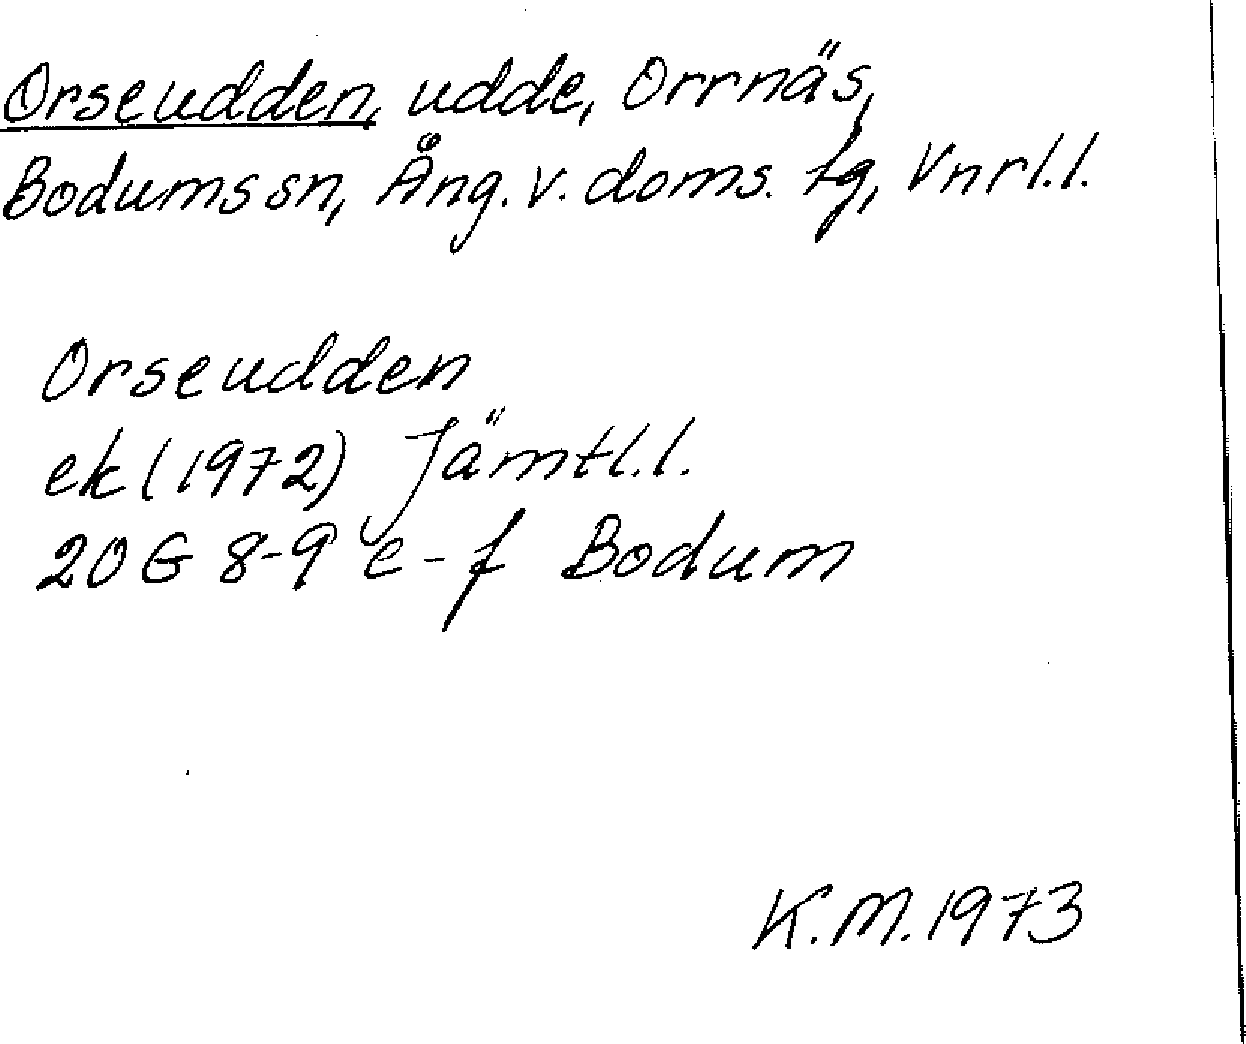 Orseudden, udde, Orrnäs,
Bodums sn, Ång. v. doms. tg, Vnrl.l.
Orseudden
ek (1972) Jämtl.l.
20 G 8-9 e-f Bodum
K.M. 1973